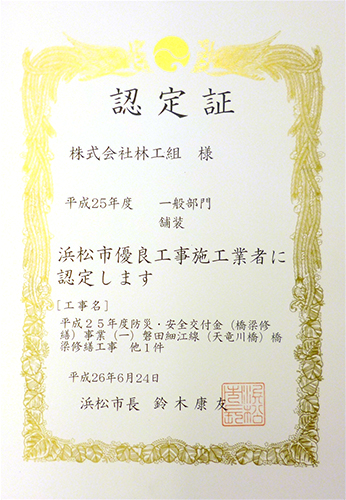 認定証
株式会社林工組 様
平成25年度 一般部門
舗装
浜松市優良工事施工業者に
認定します
[工事名]
平成25年度防災・安全交付金(橋梁修
繕)事業(一)磐田細江線(天竜川橋)橋
梁修繕工事 他1件
平成26年6月24日
浜松市長 鈴木康友